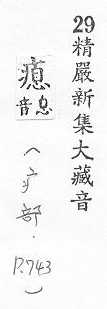 29精嚴新集大藏音
音
(疒部.
P.743)